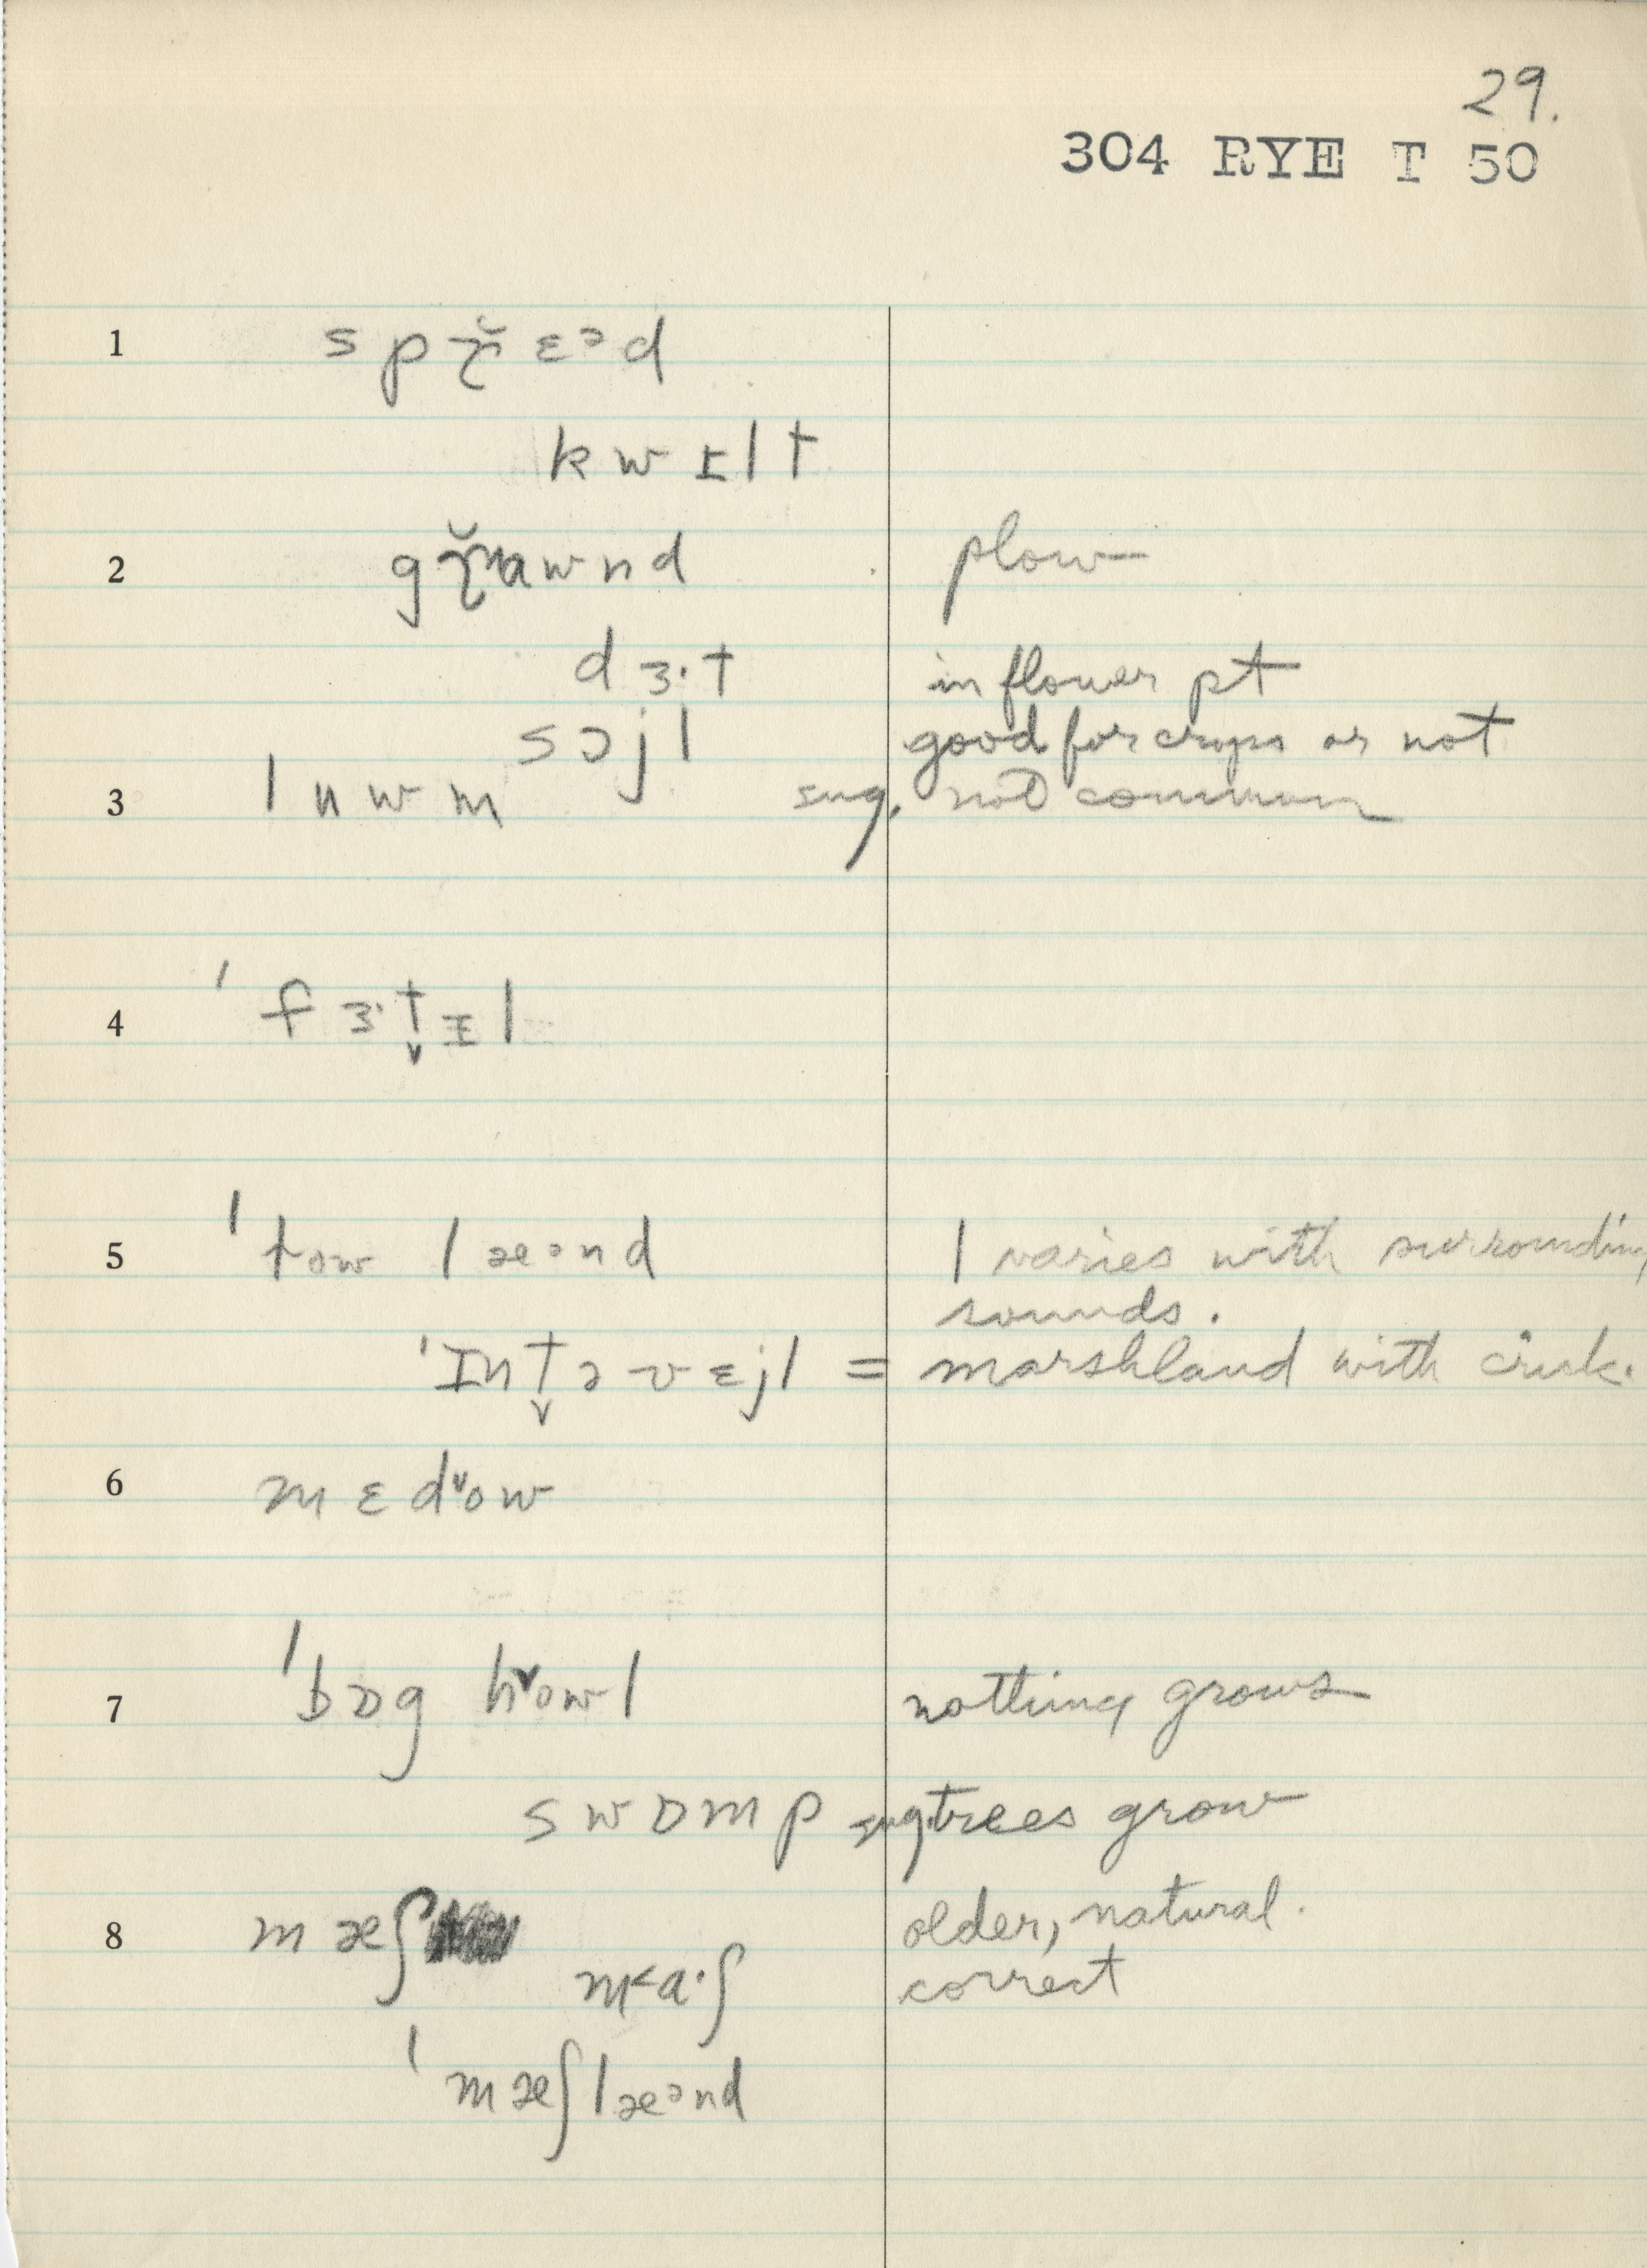 29.
304 RYE T 50
1 s p ɹ̯̆ ɛ ᵊ d
k w ɪ l t
2 g ɹ̯̆ a w n d plow
d ɜ · t in flower pt
s ɔ j l good for crops or not
3 l u w m sug. not common
4 ˈ f ɜ· t̬ ɪ l
5 ˈ t ow l æ ᵊ n d l varies with surrounding
sounds.
ˈ ɪ n t̬ ə v ɛ j l = marshland with crick.
6 m ɛ d ˅ o w
7 ˈ b ɒ g h ˅ o w l nothing grows
s w ɒ m p sug. trees grow
8 m æ ʃ older, natural.
m ˂ a · ʃ correct
ˈ m æ ʃ l æ ᵊ n d